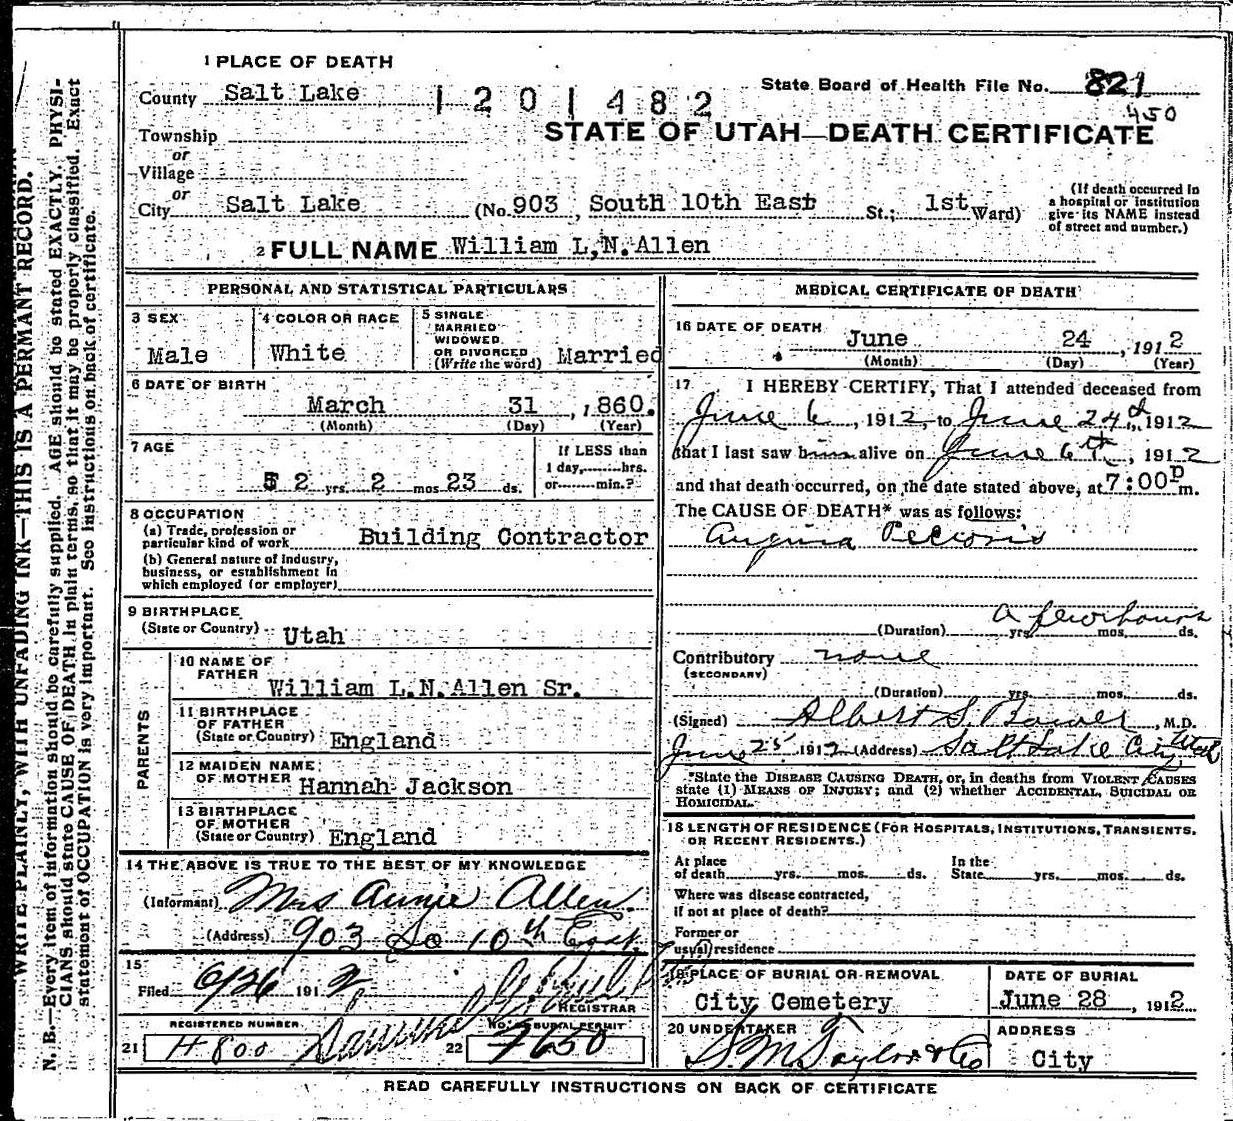 WRITE PLAINLY, WITH UNFADING INK—THIS IS A PERMANT RECORD.
N. B.—Every item of information should be carefully supplied. AGE should be stated EXACTLY. PHYSI-
CIANS should state CAUSE OF DEATH in plain terms, so that it may be properly classified. Exact
statement of OCCUPATION is very important. See instructions on back of certificate.
1 PLACE OF DEATH
State Board of Health File No. 821
County Salt Lake 1201482
450
Township
STATE OF UTAH—DEATH CERTIFICATE
or
Village
or
City Salt Lake (No. 903, South 10th East St.; 1st Ward)
(If death occurred in
a hospital or institution
give its NAME instead
of street and number.)
2 FULL NAME William L.N.Allen
PERSONAL AND STATISTICAL PARTICULARS
3 SEX Male
4 COLOR OR RACE White
5 SINGLE
MARRIED
WIDOWED
OR DIVORCED
(Write the word) Married
6 DATE OF BIRTH
March 31, 1860.
(Month) (Day) (Year)
7 AGE
52 yrs. 2 mos 23 ds.
If LESS than
1 day,........hrs.
or........min.?
8 OCCUPATION
(a) Trade, profession or
particular kind of work Building Contractor
(b) General nature of industry,
business, or establishment in
which employed (or employer)
9 BIRTHPLACE
(State or Country) Utah
PARENTS
10 NAME OF
FATHER William L.N.Allen Sr.
11 BIRTHPLACE
OF FATHER
(State or Country) England
12 MAIDEN NAME
OF MOTHER Hannah Jackson
13 BIRTHPLACE
OF MOTHER
(State or Country) England
14 THE ABOVE IS TRUE TO THE BEST OF MY KNOWLEDGE
(Informant) Mrs Annie Allen.
(Address) 903 So 10th East.
15
Filed 6/26 1912
REGISTRAR
REGISTERED NUMBER
21 H800
NO. OF BURIAL PERMIT
22 7650
MEDICAL CERTIFICATE OF DEATH
16 DATE OF DEATH June 24, 1912
(Month) (Day) (Year)
17 I HEREBY CERTIFY, That I attended deceased from
June 6, 1912, to June 24th, 1912
that I last saw him alive on June 6th, 1912
and that death occurred, on the date stated above, at 7:00 P m.
The CAUSE OF DEATH* was as follows:
Angina Pectoris
a few hours
(Duration) yrs. mos. ds.
Contributory none
(SECONDARY)
(Duration) yrs. mos. ds.
(Signed) Albert S. Bower, M.D.
June 25, 1912 (Address) Salt Lake City Utah
*State the DISEASE CAUSING DEATH, or, in deaths from VIOLENT CAUSES
state (1) MEANS OF INJURY; and (2) whether ACCIDENTAL, SUICIDAL OR
HOMICIDAL.
18 LENGTH OF RESIDENCE (FOR HOSPITALS, INSTITUTIONS, TRANSIENTS,
OR RECENT RESIDENTS.)
At place
of death yrs. mos. ds.
In the
State yrs. mos. ds.
Where was disease contracted,
if not at place of death?
Former or
usual residence
19 PLACE OF BURIAL OR REMOVAL
City Cemetery
DATE OF BURIAL
June 28, 1912
20 UNDERTAKER
S. M. Taylor & Co
ADDRESS
City
READ CAREFULLY INSTRUCTIONS ON BACK OF CERTIFICATE